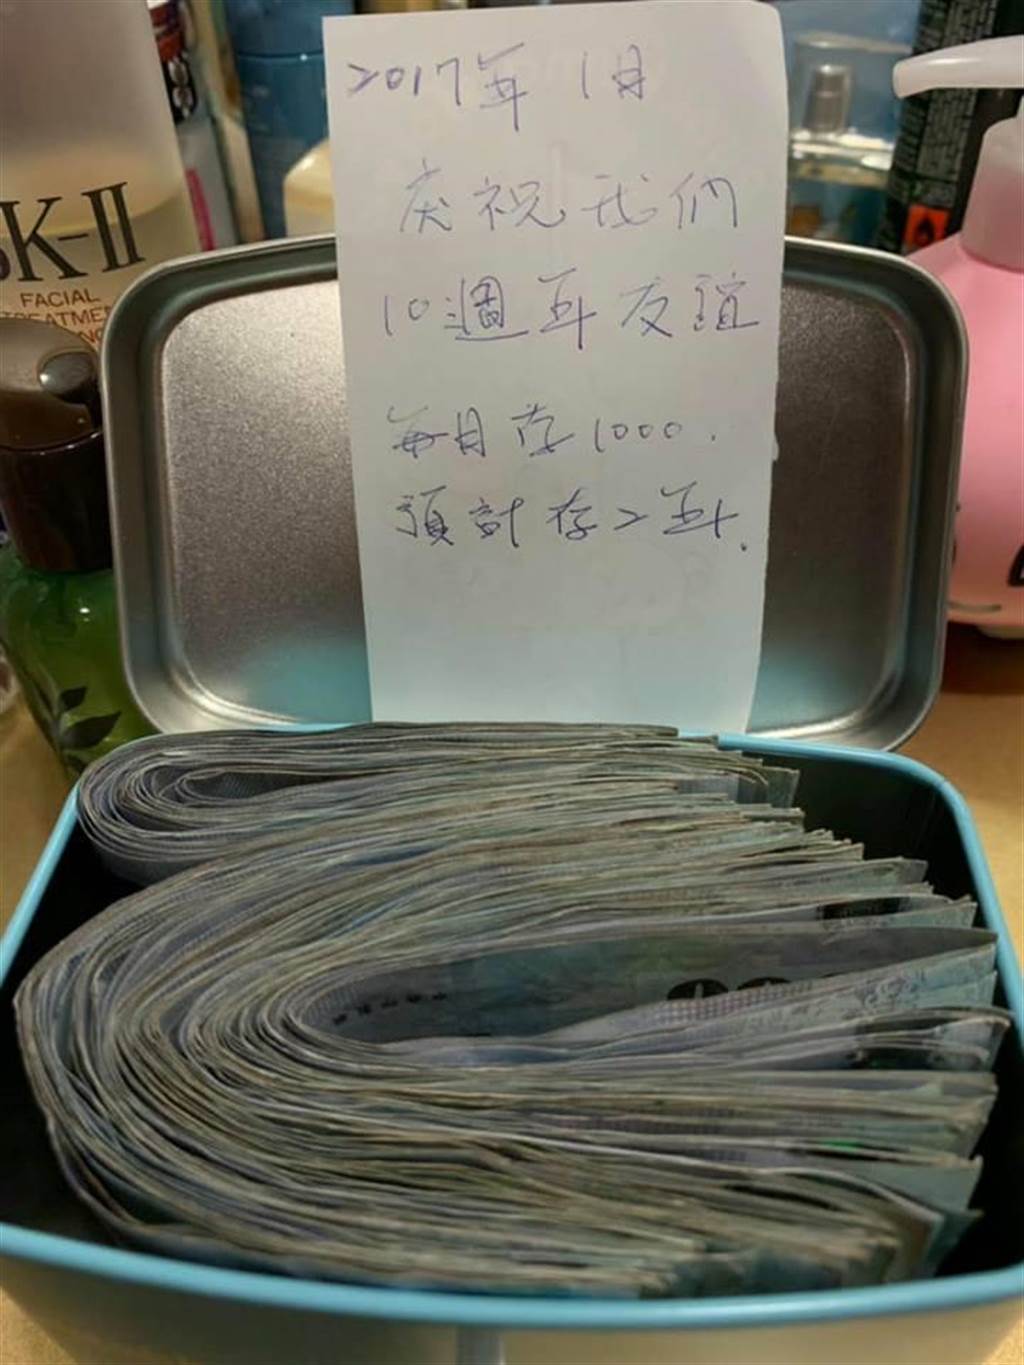 2017年1月
庆祝我們
10週年友誼
每月存1000.
預計存2年.
SK-II
FACIAL
TREATMENT